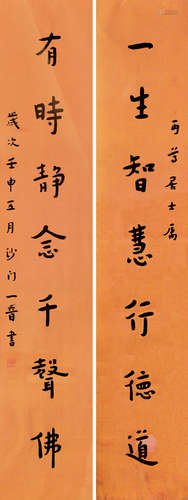 一生智慧行德道
可尊居士屬
有時静念千聲佛
歲次壬申五月沙门一音書